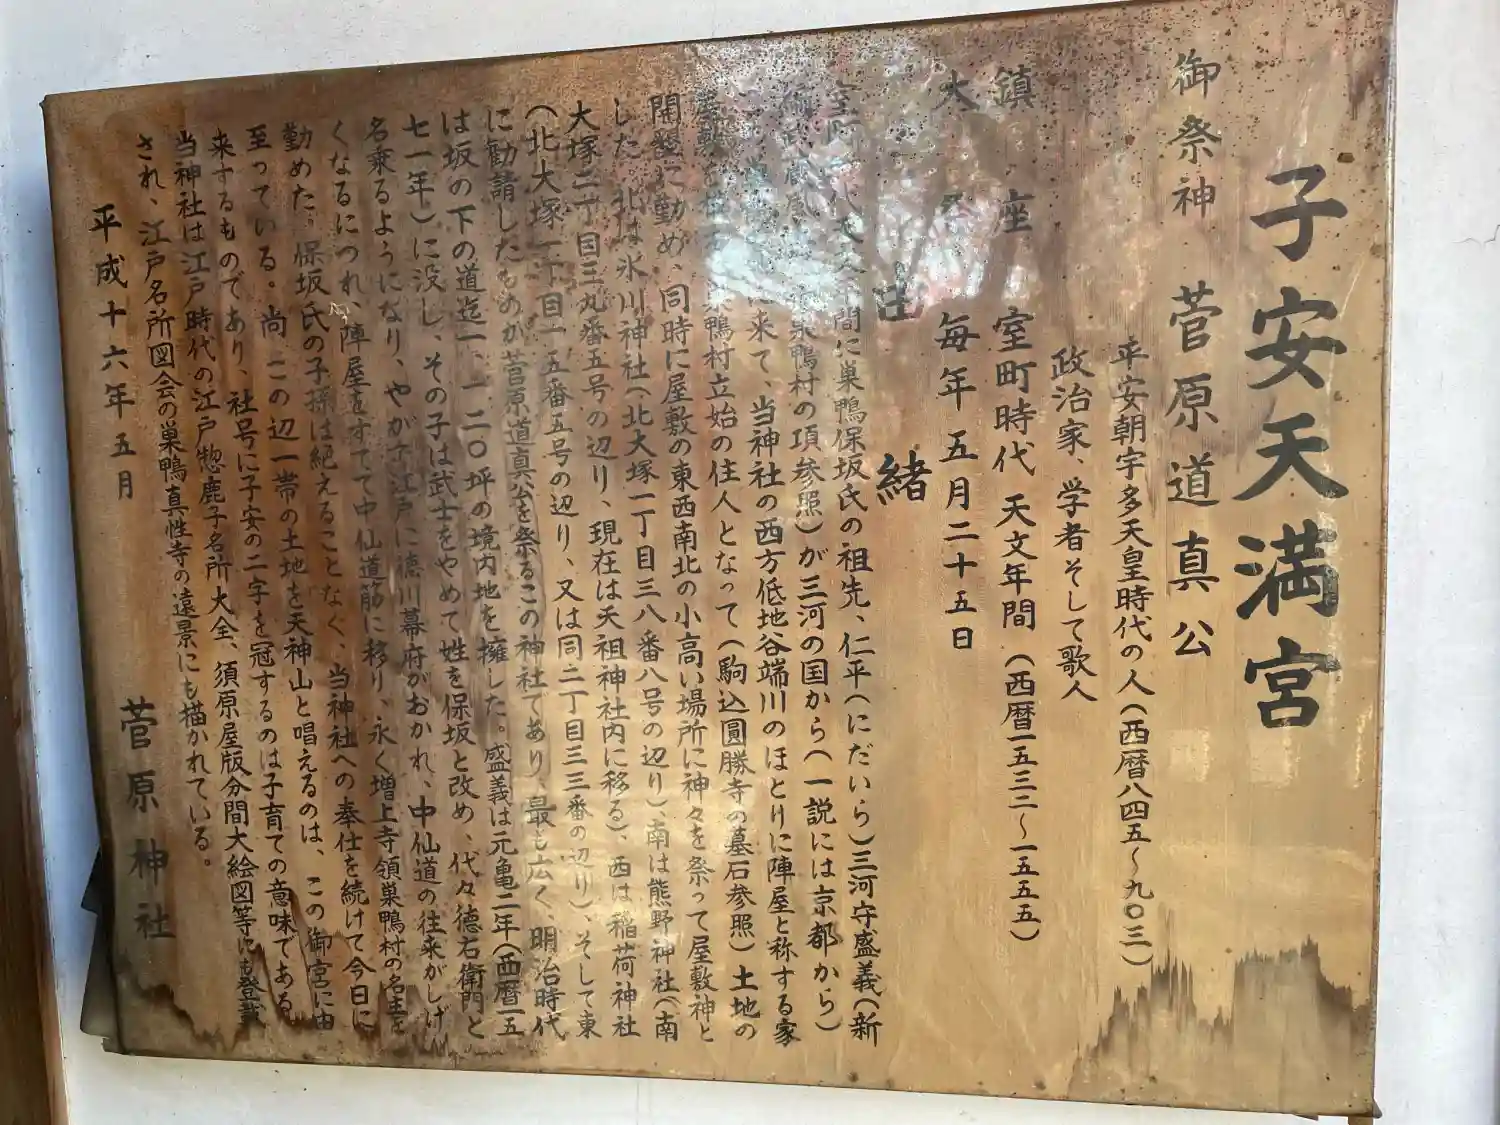 子安天満宮
御祭神 菅原道真公
平安朝宇多天皇時代の人(西暦八四五〜九〇三)
政治家、学者そして歌人
鎮座 室町時代 天文年間(西暦一五三二〜一五五五)
大 毎年 五月二十五日
緒
間に巣鴨保坂氏の祖先、仁平(にだいら)三河守盛義(新
巣鴨村の項参照)が三河の国から(一説には京都から)
に来て、当神社の西方低地谷端川のほとりに陣屋と称する家
巣鴨村立始の住人となって(駒込圓勝寺の墓石参照)土地の
開墾に勤め、同時に屋敷の東西南北の小高い場所に神々を祭って屋敷神と
した。北は氷川神社(北大塚一丁目三八番八号の辺り)、南は熊野神社(南
大塚二丁目三九番五号の辺り、現在は天祖神社内に移る)、西は稲荷神社
(北大塚一丁目一五番五号の辺り、又は同二丁目三三番の辺り)、そして東
に勧請したものが菅原道真公を祭るこの神社であり、最も広く、明治時代
は坂の下の道迄一、一二〇坪の境内地を擁した。盛義は元亀二年(西暦一五
七一年)に没し、その子は武士をやめて姓を保坂と改め、代々徳右衛門と
名乗るようになり、やがて江戸に徳川幕府がおかれ、中仙道の往来がしげ
くなるにつれ、陣屋をすてて中仙道筋に移り、永く増上寺領巣鴨村の名主を
勤めた。保坂氏の子孫は絶えることなく、当神社への奉仕を続けて今日に
至っている。尚、この辺一帯の土地を天神山と唱えるのは、この御宮に由
来するものであり、社号に子安の二字を冠するのは子育ての意味である。
当神社は江戸時代の江戸惣鹿子名所大全、須原屋版分間大絵図等にも登載
され、江戸名所図会の巣鴨真性寺の遠景にも描かれている。
平成十六年五月
菅原神社